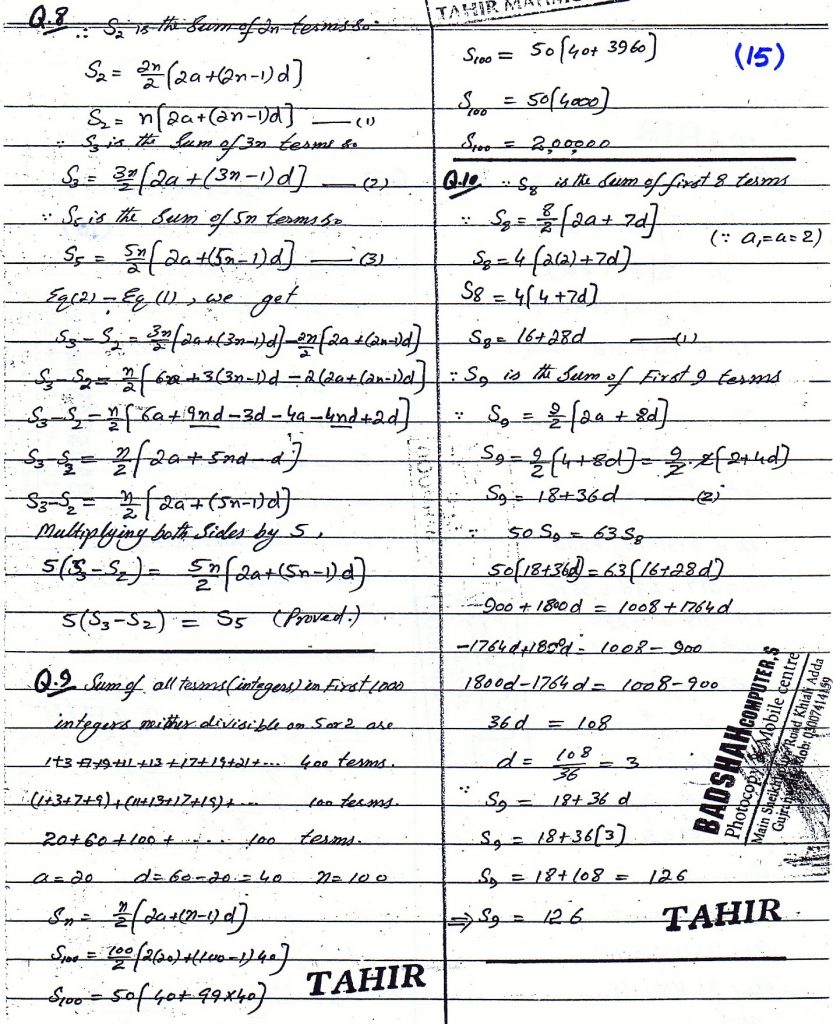 Q.8 ∵ S₂ is the Sum of 2n terms so
S₂ = 2n/2 [2a+(2n-1)d]
S₂ = n[2a+(2n-1)d] —(1)
∵ S₃ is the Sum of 3n terms so
S₃ = 3n/2 [2a+(3n-1)d] —(2)
∵ S₅ is the Sum of 5n terms so
S₅ = 5n/2 [2a+(5n-1)d] —(3)
Eq(2) – Eq(1), we get
S₃-S₂ = 3n/2 [2a+(3n-1)d] - 2n/2 [2a+(2n-1)d]
S₃-S₂ = n/2 [6a+3(3n-1)d-2(2a+(2n-1)d]
S₃-S₂ = n/2 [6a+9nd-3d-4a-4nd+2d]
S₃-S₂ = n/2 [2a+5nd-d]
S₃-S₂ = n/2 [2a+(5n-1)d]
Multiplying both Sides by 5,
5(S₃-S₂) = 5n/2 [2a+(5n-1)d]
5(S₃-S₂) = S₅ (Proved.)
Q.9 Sum of all terms (integers) in First 1000
integers neither divisible on 5 or 2 are
1+3+7+9+11+13+17+19+21+... 400 terms.
(1+3+7+9)+(11+13+17+19)+... 100 terms.
20+60+100+.... 100 terms.
a=20 d=60-20=40 n=100
Sn = n/2 [2a+(n-1)d]
S₁₀₀ = 100/2 [2(20)+(100-1)40]
S₁₀₀ = 50[40+99×40]
TAHIR
TAHIR
(15)
S₁₀₀ = 50[40+3960]
S₁₀₀ = 50[4000]
S₁₀₀ = 2,00,000
Q.10 ∵ S₈ is the Sum of first 8 terms
∵ S₈ = 8/2 [2a+7d]
(∵ a₁=a=2)
S₈ = 4[2(2)+7d]
S8 = 4[4+7d]
S₈ = 16+28d —(1)
∵ S₉ is the Sum of First 9 terms
∵ S₉ = 9/2 [2a+8d]
S₉ = 9/2 [4+8d] = 9/2 · 2[2+4d]
S₉ = 18+36d —(2)
∵ 50 S₉ = 63 S₈
50[18+36d] = 63[16+28d]
900+1800d = 1008+1764d
-1764d+1800d = 1008-900
1800d-1764d = 1008-900
36d = 108
d = 108/36 = 3
∵ S₉ = 18+36d
S₉ = 18+36[3]
S₉ = 18+108 = 126
⇒ S₉ = 126
TAHIR
BADSHAH COMPUTER,S
Photocopy & Mobile centre
Main Road Khiali Adda
Mobi: 03007414159